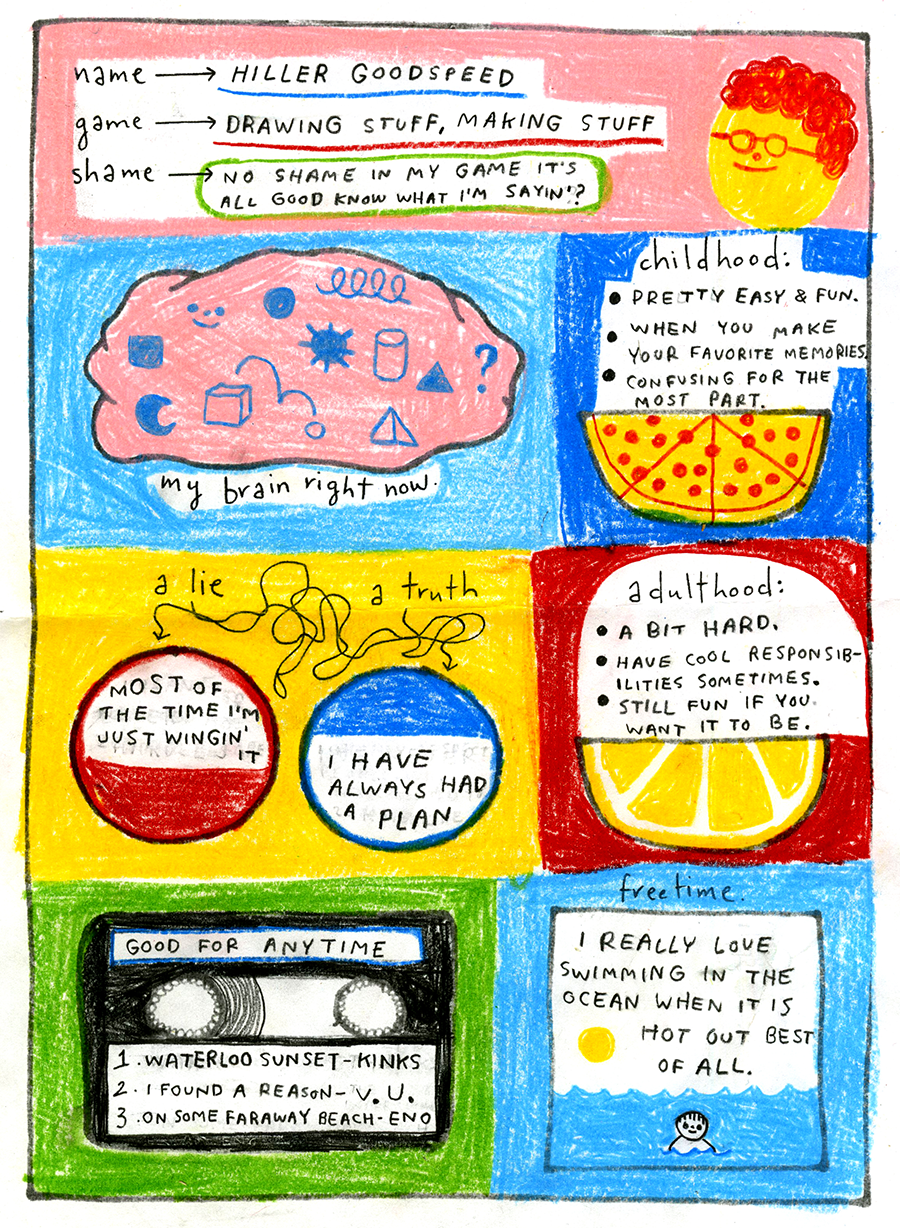 name → HILLER GOODSPEED
game → DRAWING STUFF, MAKING STUFF
shame → NO SHAME IN MY GAME IT'S
ALL GOOD KNOW WHAT I'M SAYIN'?
?
my brain right now.
childhood:
• PRETTY EASY & FUN.
• WHEN YOU MAKE
YOUR FAVORITE MEMORIES.
• CONFUSING FOR THE
MOST PART.
a lie
a truth
MOST OF
THE TIME I'M
JUST WINGIN'
IT
I HAVE
ALWAYS HAD
A PLAN
adulthood:
• A BIT HARD.
• HAVE COOL RESPONSIB-
ILITIES SOMETIMES.
• STILL FUN IF YOU
WANT IT TO BE.
GOOD FOR ANYTIME
1. WATERLOO SUNSET - KINKS
2. I FOUND A REASON - V. U.
3 ON SOME FARAWAY BEACH - ENO
freetime.
I REALLY LOVE
SWIMMING IN THE
OCEAN WHEN IT IS
HOT OUT BEST
OF ALL.